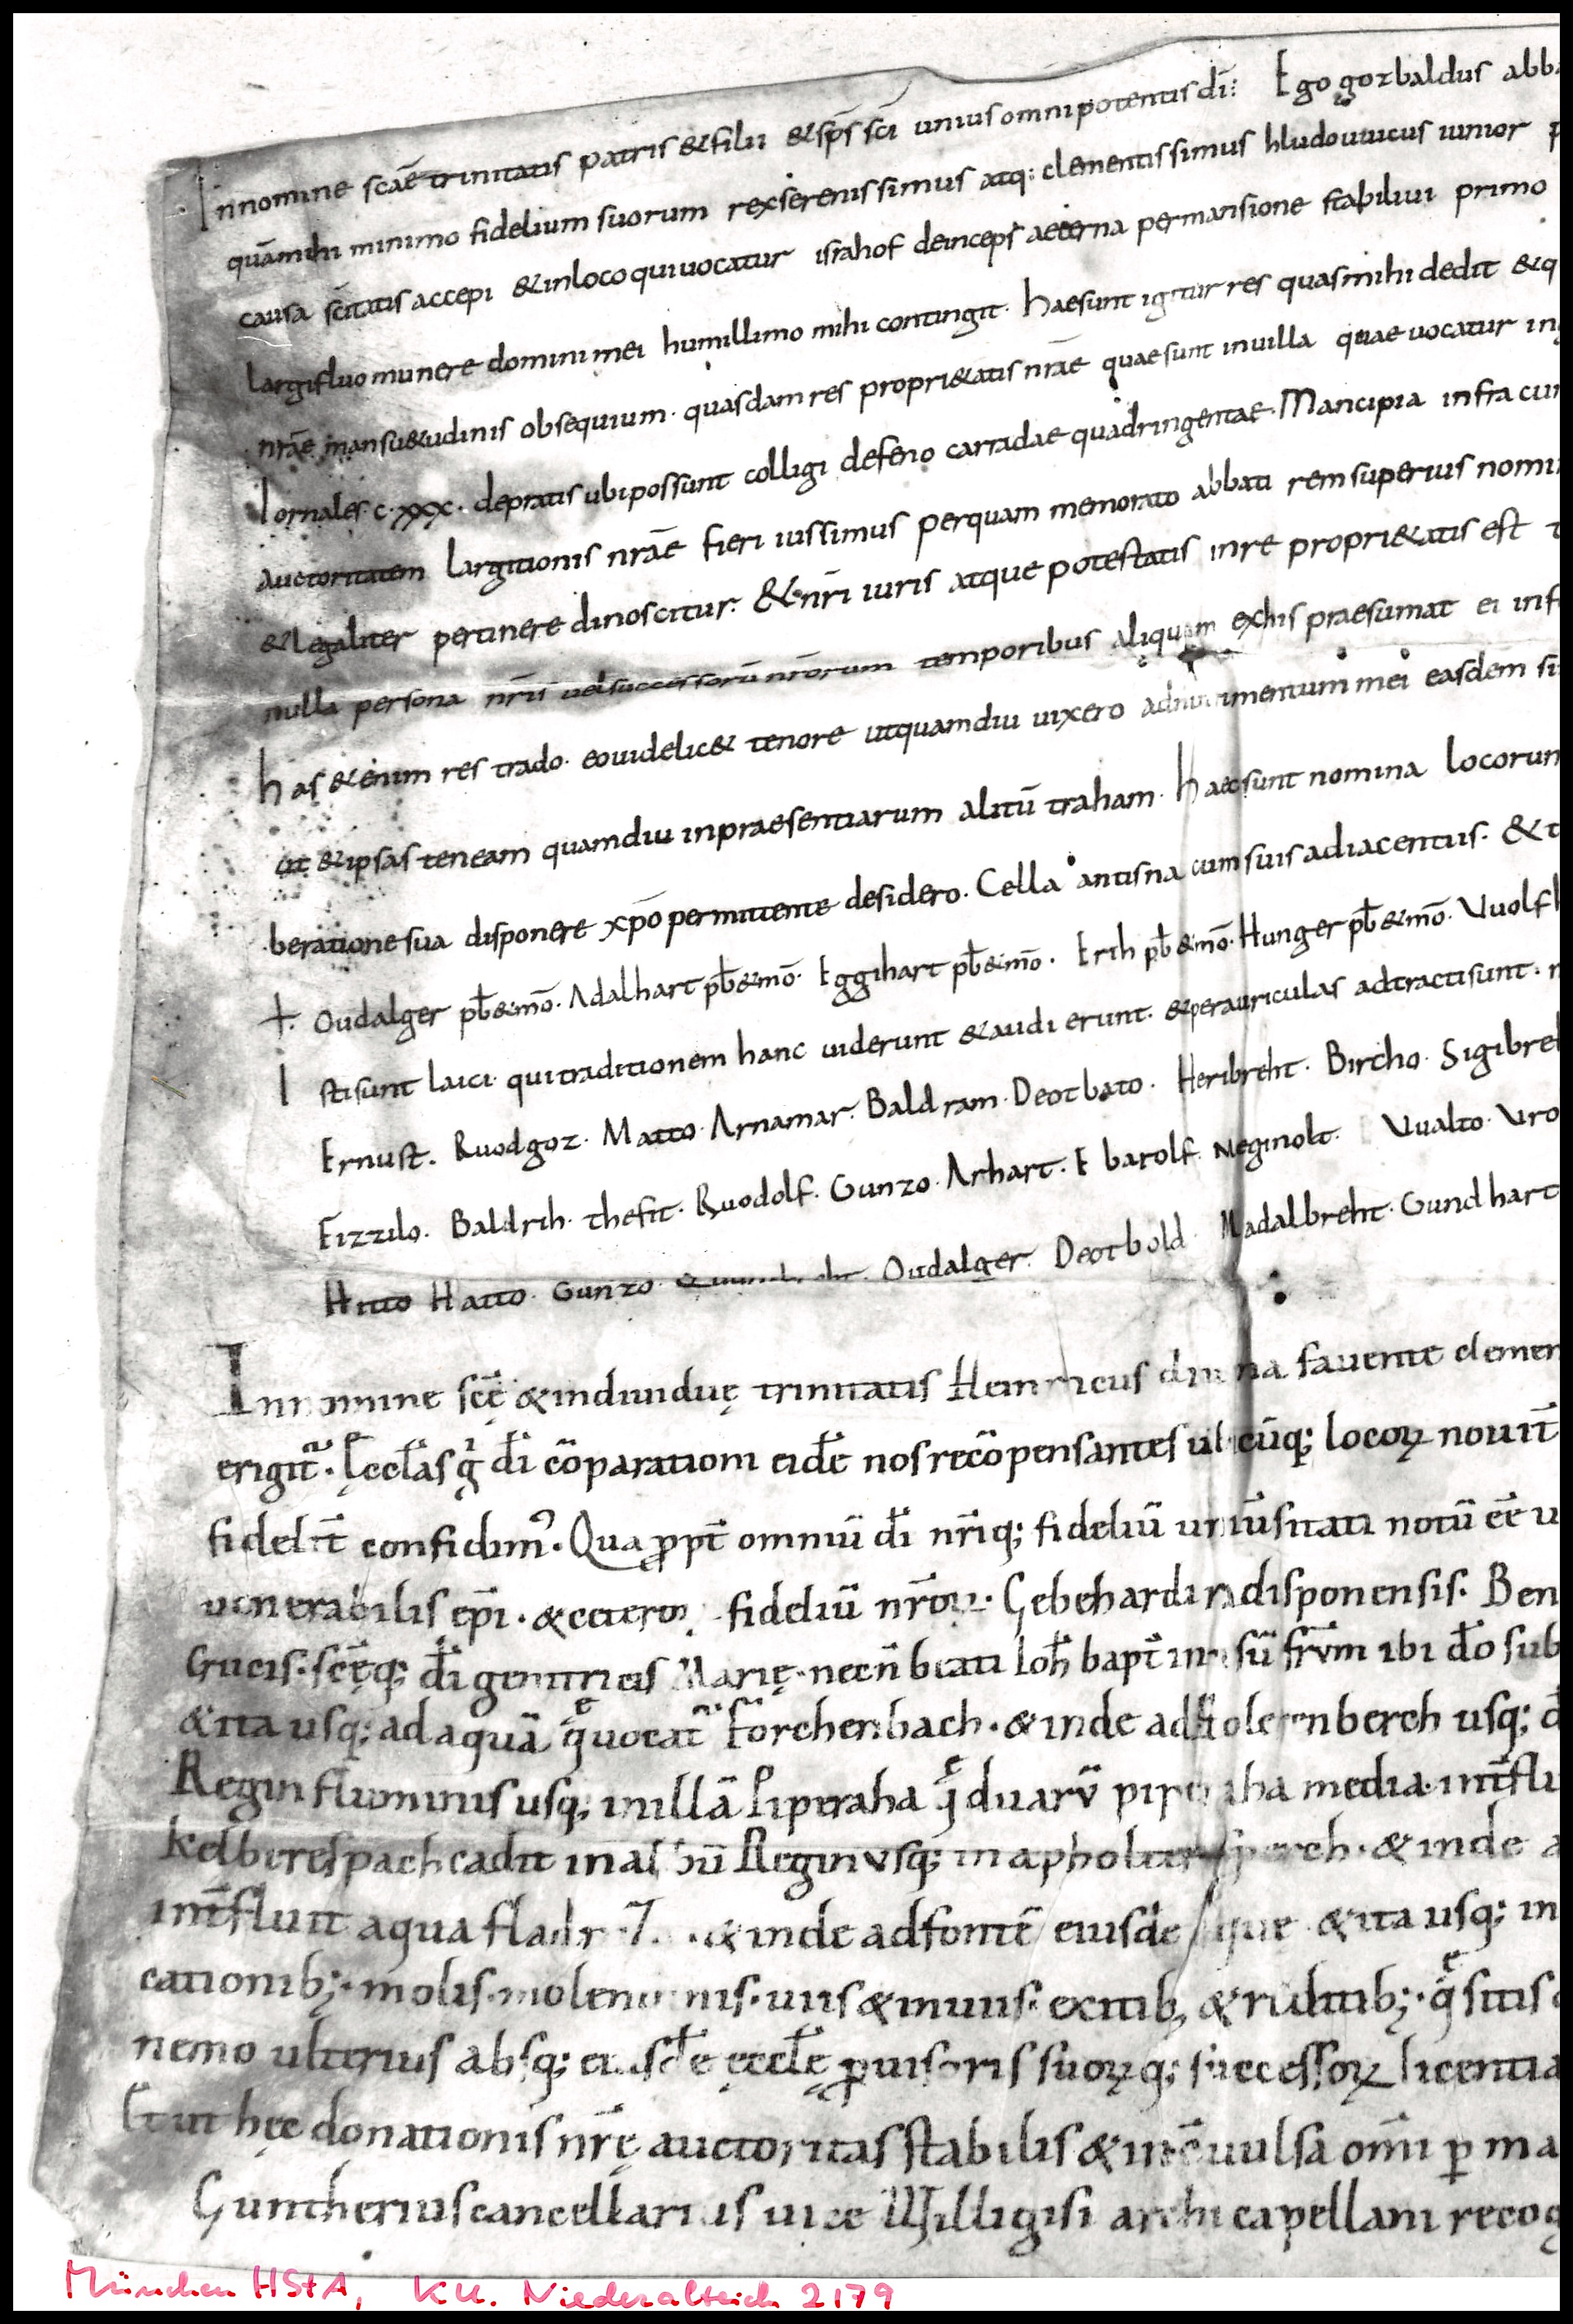 In nomine scāe trinitatis patris & filii & sp̄s sc̄i unius omnipotentis dī: Ego gozbaldus abba
quā mihi minimo fidelium suorum rex serenissimus atq: clementissimus hludouuicus iunior p
causa sc̄itatis accepi & in loco qui uocatur israhof deinceps aeterna permansione stabiliui primo
largifluo munere domini mei humillimo mihi contingit. haec sunt igitur res quas mihi dedit & q
nrāe mansu&udinis obsequium. quasdam res propri&atis nrāe quae sunt in uilla quae uocatur in
Iornales. c. xxx. de pratis ubi possunt colligi de feno carradae quadringentae. Mancipia infra cur
auctoritatem largitionis nrāe fieri iussimus per quam memorato abbati rem superius nomi
& legaliter pertinere dinoscitur. & nr̄i iuris atque potestatis in re propri&atis est
nulla persona nr̄is uel successorū nrōrum temporibus aliquam ex his praesumat ei inf
has &enim res trado. eo uidelic& tenore ut quamdiu uixero ad mei easdem si
ut & ipsas teneam quamdiu in praesentiarum alitū traham. haec sunt nomina locorum
beratione sua disponere xp̄o permittente desidero. Cella antisna cum suis adiacentiis. & t
+. Oudalger pb̄ & mō. Adalhart pb̄ & mō. Eggihart pb̄ & mō. Erih pb̄ & mō. Hunger pb̄ & mō. Vuolfh
Isti sunt laici. qui traditionem hanc uiderunt & audierunt. & per auriculas adtracti sunt.
Ernust. Ruodgoz. Matto. Arnamar. Baldram. Deotbato. Heribreht. Bircho. Sigibreh
Eizzilo. Baldrih. thefit. Ruodolf. Gunzo. Arhart. Ebarolf. Neginolt. Vualto. Vro
Hitto Hatto. Gunzo. Oudalger. Deotbold. Madalbreht. Gundhart
In nomine sc̄ę & indiuiduę trinitatis Heinricus diuina fauente clemen
erigit. Ęccl̄as g dī cōparationi eidē nos recōpensantes ubicūq; locoꝝ nouit̄
fidelit̄ confidim᾿. Qua ꝓpt̄ omniū dī nr̄iq; fideliū uniūsitati notū eē u
uenerabilis ep̄i. & ceteroꝝ fideliū nr̄oꝝ. Gebehardi radisponensis. Ben
Crucis. sc̄ęq; dī genitricis Marię. necn̄ beati Ioh̄ bapt̄ in sū fr̄vm ibi dō sub
& ita usq; ad aquā q̄ uocat̄ Forchenbach. & inde ad Holerenberch usq; d
Regin fluminis usq; in illā Piperaha q̄ duarv̄ piperaha media int̄flu
kelberespach cadit in Regin vsq; in & inde a
int̄fluit aqua & inde ad fontē eiusdē & ita usq; in
cationib;. molis. molendinis. uiis & inuiis. exitib; & reditib;. q̄sitis
nemo ulterius absq; eiusdē ęccl̄ę ꝓuisoris suoꝝq; successoꝝ licentia
Et ut hęc donationis nr̄ę auctoritas stabilis & incōuulsa om̄i ꝑ ma
Guntherius cancellarius uice Willigisi archicapellani recog
München HStA, KU. Niederalteich 2179